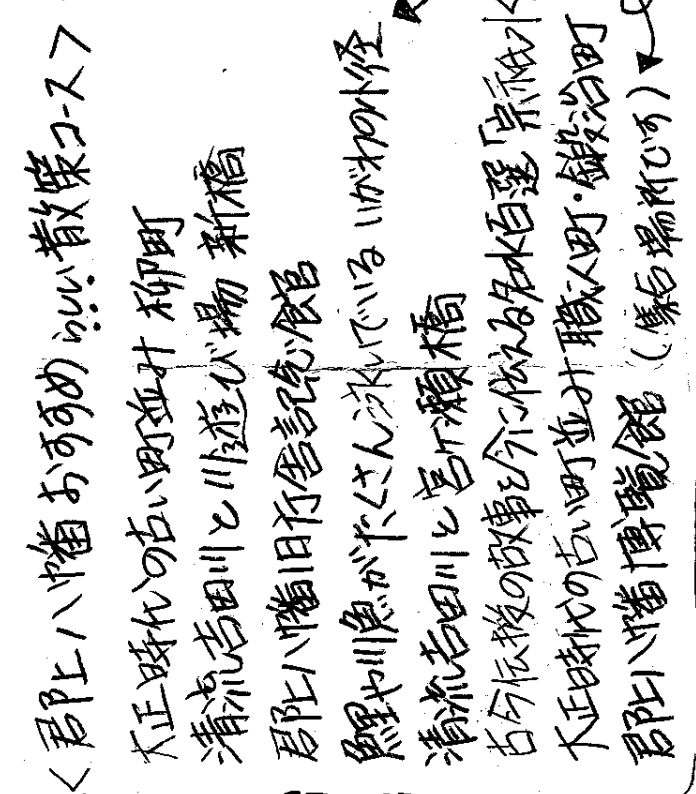 <郡上八幡おすすめらしい散策コース>
大正時代の古い町並み 柳町
清流吉田川と川遊び場 新橋
郡上八幡旧庁舎記念館
鯉や川魚がたくさん泳いでいる いがわの小径
清流吉田川と宮ヶ瀬橋
古今伝授の故事を今に伝える名水百選「宗祇水
大正時代の古い町並み 職人町・鍛治町
郡上八幡博覧館 (集合場所です)